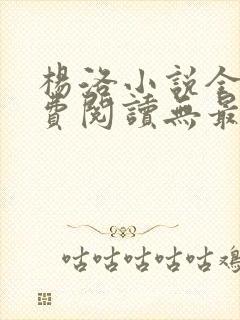 楊洛小説全
費閱讀無最
咕咕咕咕咕雞